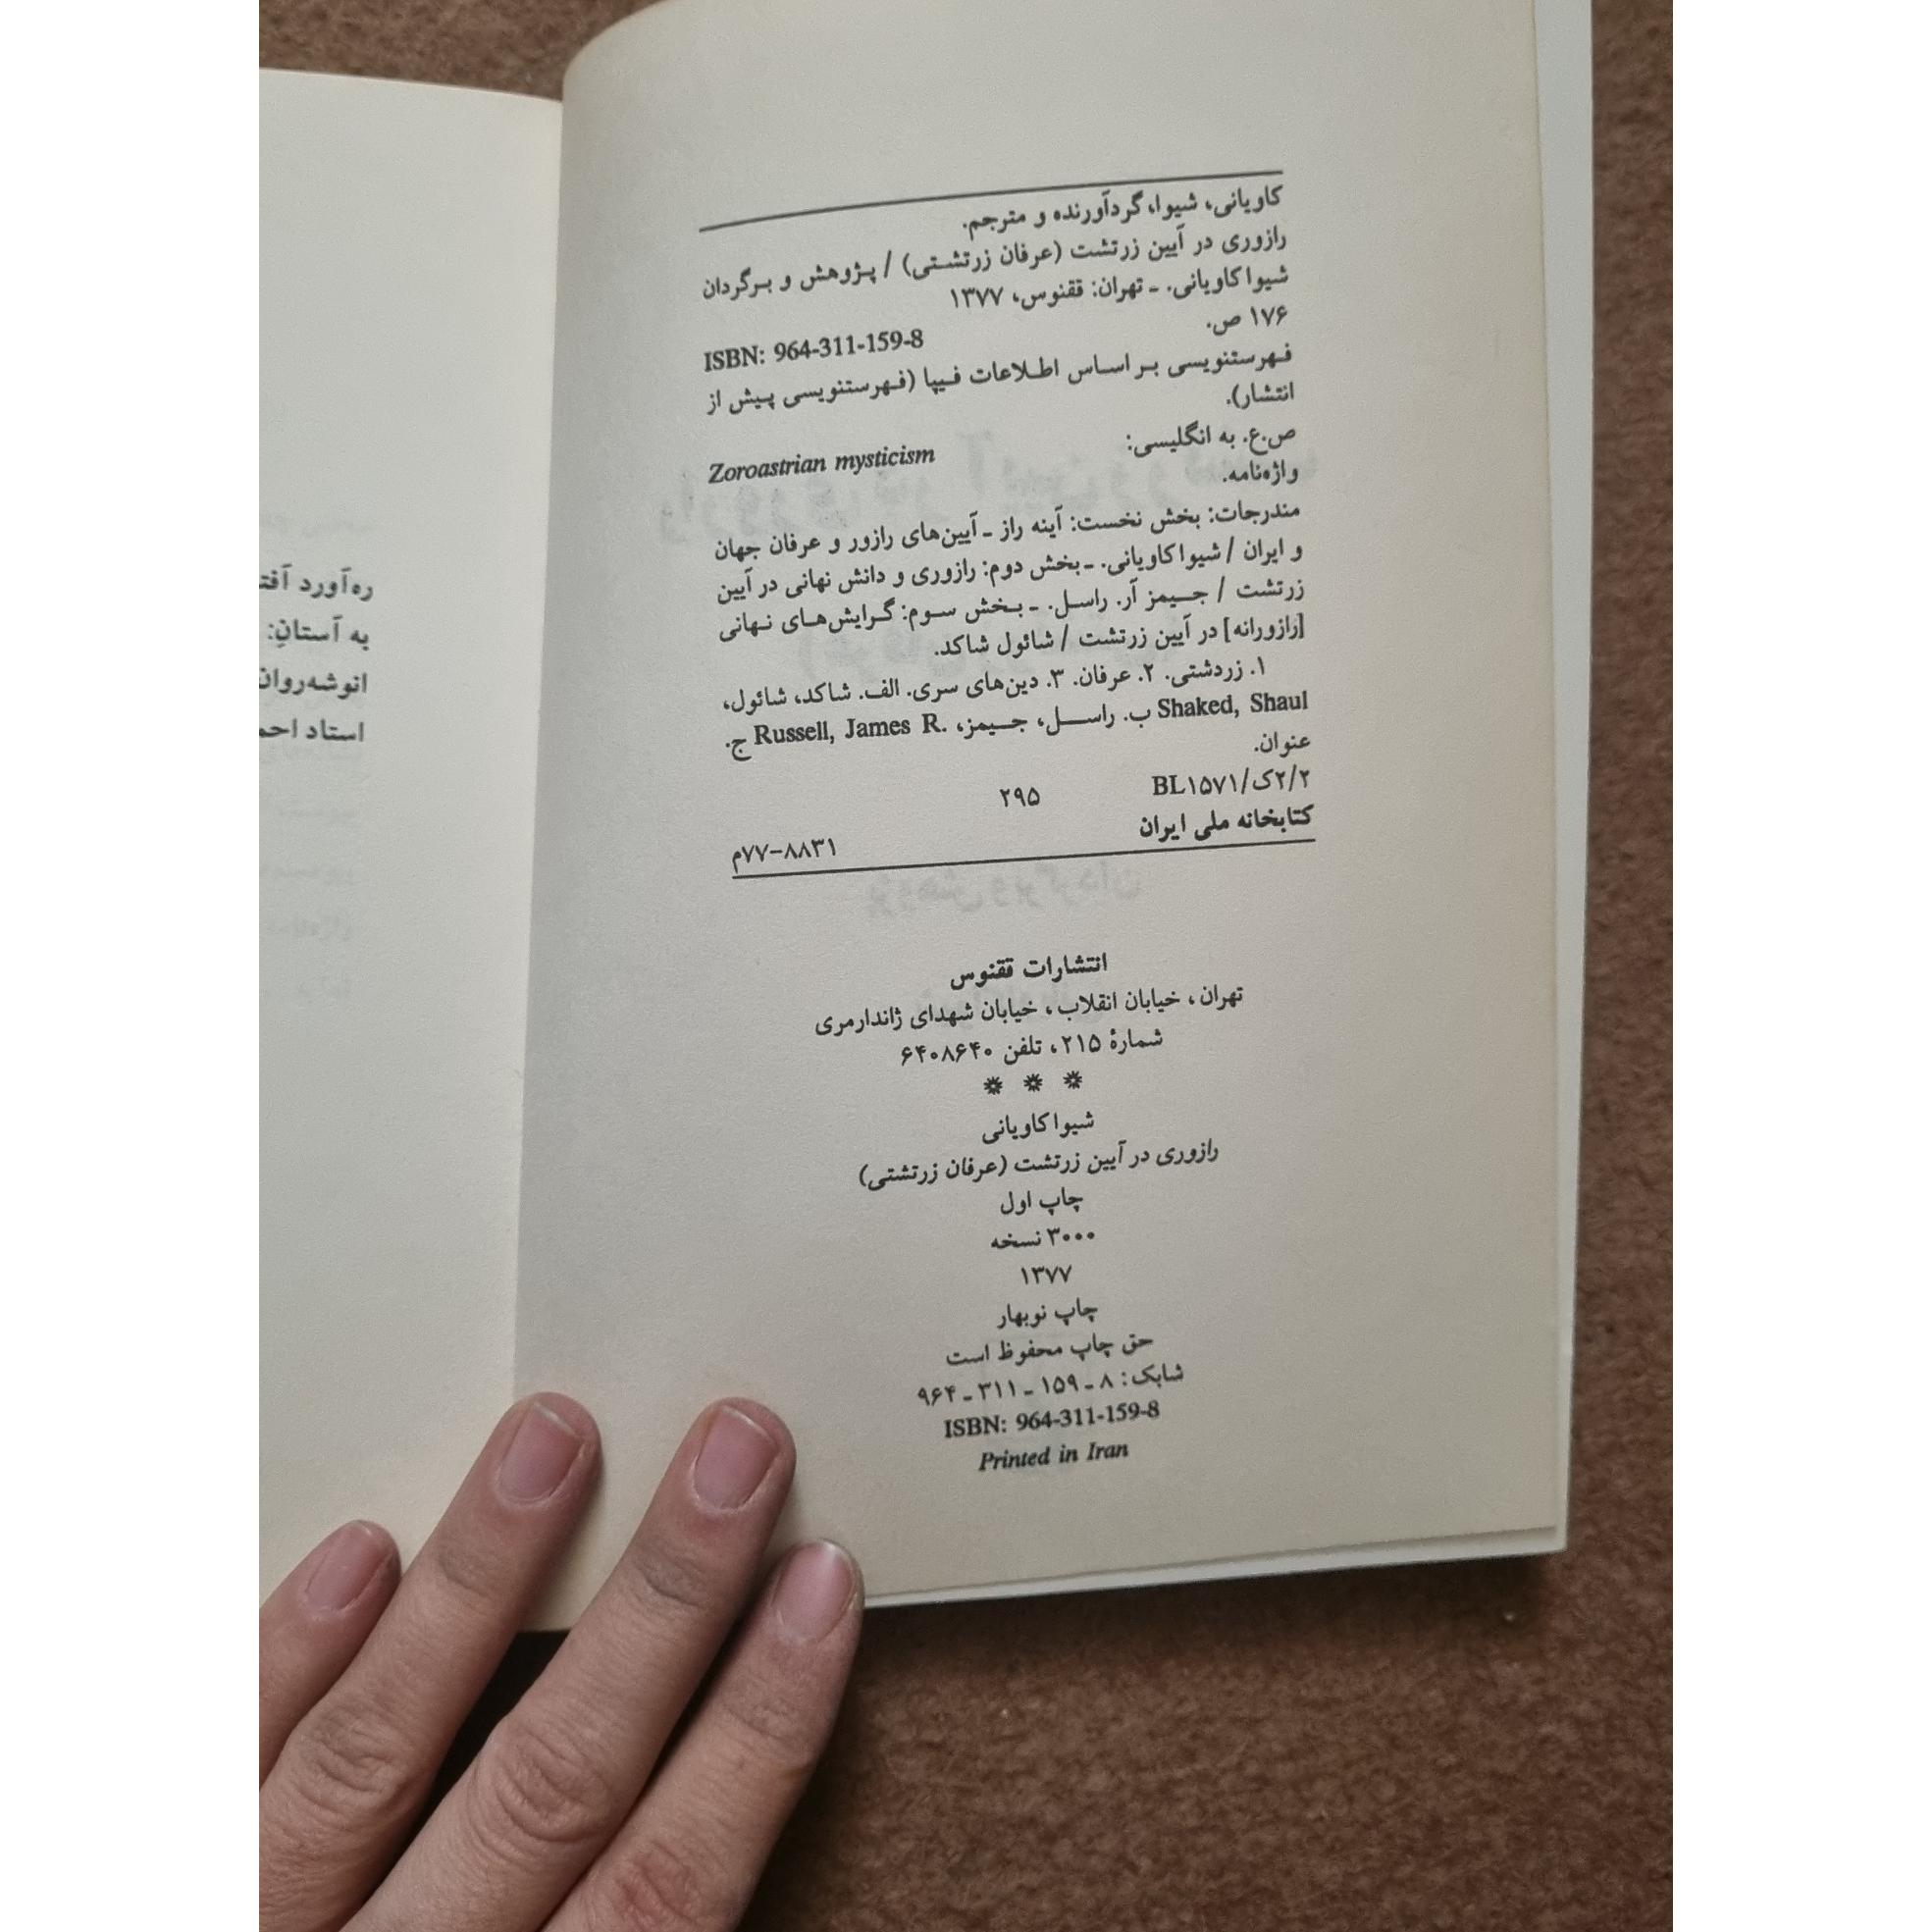 کاویانی، شیوا، گردآورنده و مترجم.
رازوری در آیین زرتشت (عرفان زرتشتی) / پژوهش و برگردان
شیوا کاویانی. ـ تهران: ققنوس، ۱۳۷۷
۱۷۶ ص.
ISBN: 964-311-159-8
فهرستنویسی بر اساس اطلاعات فیپا (فهرستنویسی پیش از
انتشار).
ص.ع. به انگلیسی: Zoroastrian mysticism
واژه‌نامه.
مندرجات: بخش نخست: آینه راز ـ آیین‌های رازور و عرفان جهان
و ایران / شیوا کاویانی. ـ بخش دوم: رازوری و دانش نهانی در آیین
زرتشت / جیمز آر. راسل. ـ بخش سوم: گرایش‌های نهانی
[رازورانه] در آیین زرتشت / شائول شاکد.
۱. زردشتی. ۲. عرفان. ۳. دین‌های سری. الف. شاکد، شائول،
Shaked, Shaul ب. راسل، جیمز، Russell, James R. ج.
عنوان.
۲۹۵ BL۱۵۷۱/ک۲/۲
کتابخانه ملی ایران
م۷۷-۸۸۳۱
انتشارات ققنوس
تهران، خیابان انقلاب، خیابان شهدای ژاندارمری
شمارهٔ ۲۱۵، تلفن ۶۴۰۸۶۴۰
* * *
شیوا کاویانی
رازوری در آیین زرتشت (عرفان زرتشتی)
چاپ اول
۳۰۰۰ نسخه
۱۳۷۷
چاپ نوبهار
حق چاپ محفوظ است
شابک: ۸ ـ ۱۵۹ ـ ۳۱۱ ـ ۹۶۴
ISBN: 964-311-159-8
Printed in Iran
ره‌آورد
به آستانِ:
انوشه‌روان
استاد